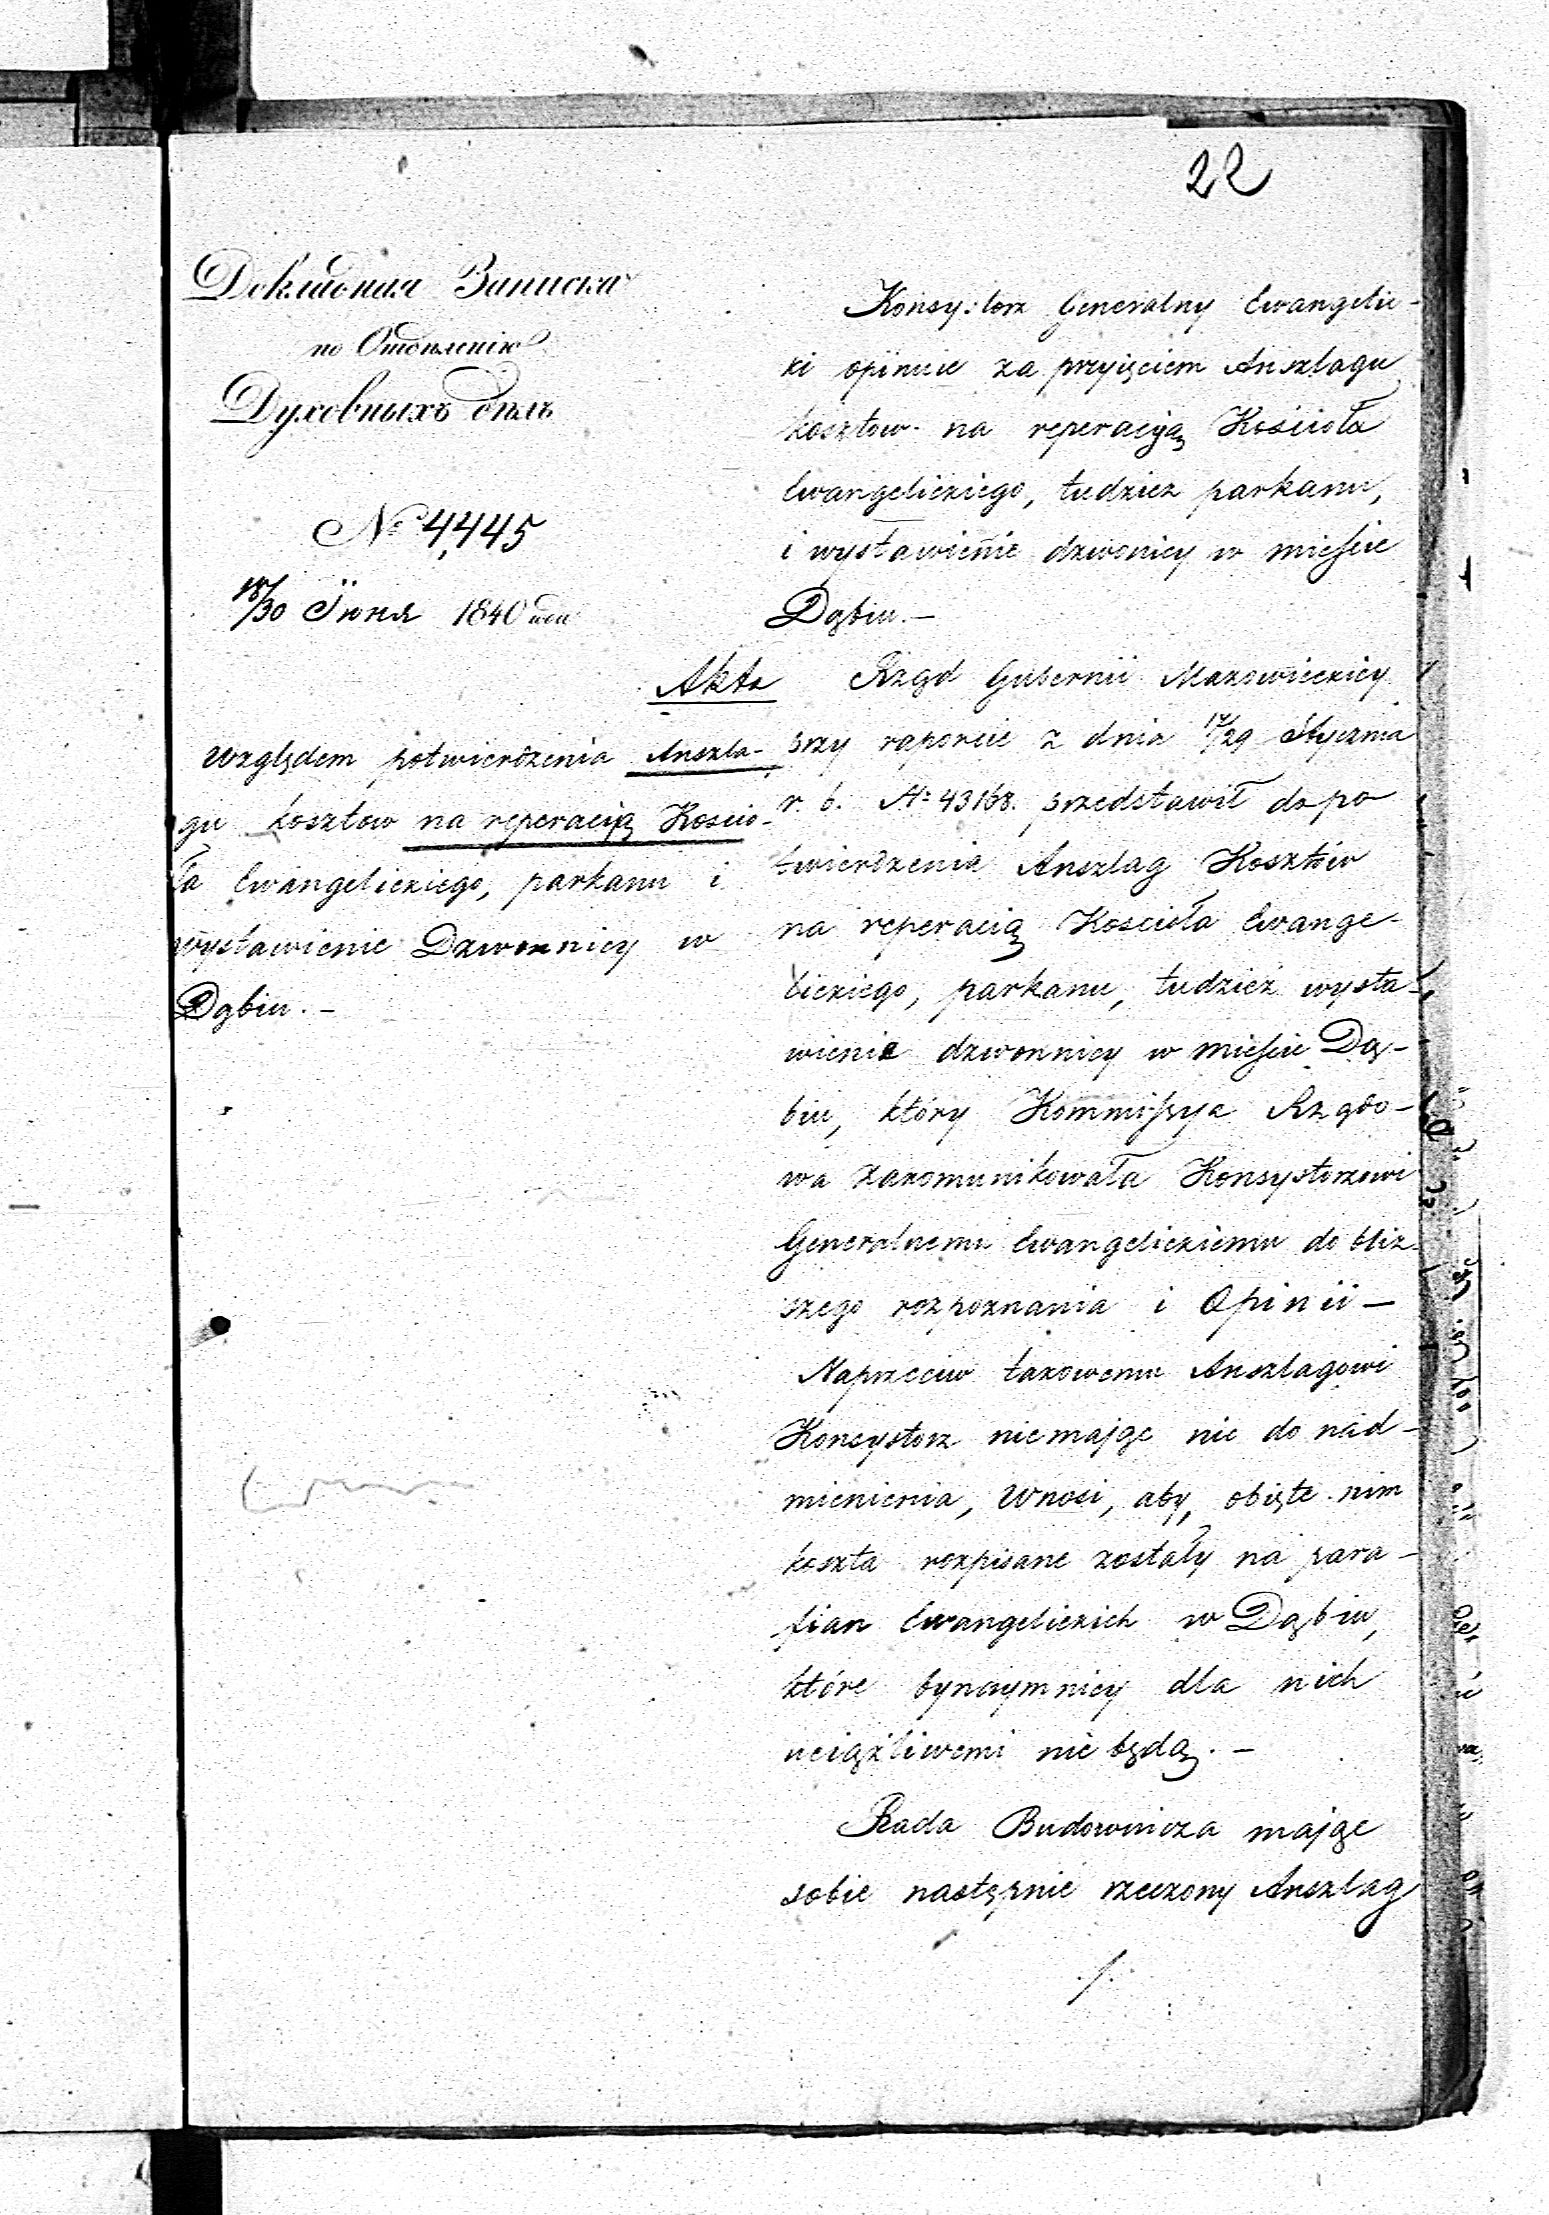 22
Докладная Записка
по Отдѣленію
Духовныхъ дѣлъ
№ 4,445
18/30 Їюня 1840 года
Akta
Względem potwierdzenia Anszla-
gu kosztow na reperacią Koscio-
ła Ewangelickiego, parkanu i
wystawienie Dzwonnicy w
Dąbiu. —
Konsystorz Generalny Ewangelic-
ki opiniuie za przyięciem Anszlagu
kosztow na reperacyią Kościoła
Ewangelickiego, tudziez parkanu,
i wystawienie dzwonicy w mieście
Dąbiu. —
Rząd Gubernii Mazowieckiey
przy raporcie z dnia 17/29 Stycznia
r. b. № 43168. przedstawił do po
twierdzenia Anszlag Kosztów
na reperacią Kościoła Ewange-
lickiego, parkanu, tudzież wysta-
wienie dzwonnicy w mieście Dą-
biu, który Kommissya Rządo-
wa zakomunikowała Konsystorzowi
Generalnemu Ewangelickiemu do bliż-
szego rozpoznania i Opinii —
Naprzeciw takowemu Anszlagowi
Koncystorz niemając nic do nad-
mienienia, wnosi, aby, obięte nim
koszta rozpisane zostały na para-
fian Ewangelickich w Dąbiu,
które bynaymniey dla nich
uciążliwemi nie będą. —
Rada Budownicza mając
sobie następnie rzeczony Anszlag
./.